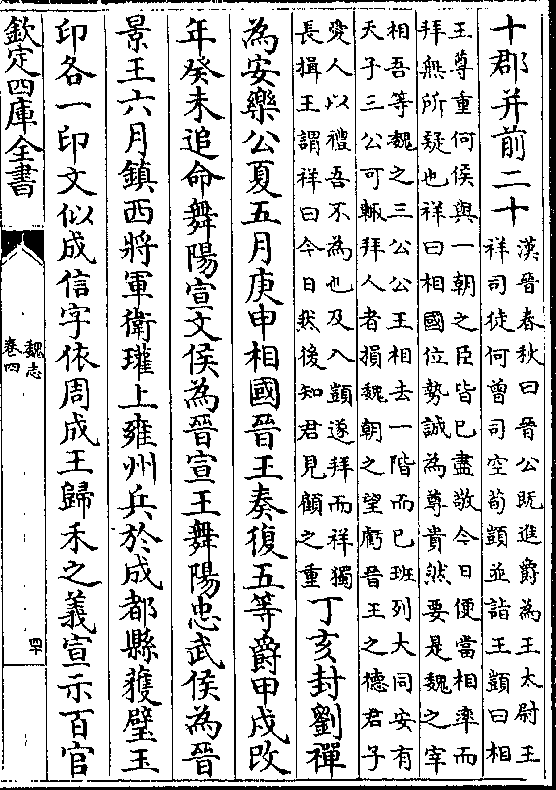 十郡并前二十漢晉春秋曰晉公既進爵為王太尉王
祥司徒何曾司空荀顗並詣王顗曰相
王尊重何侯與一朝之臣皆已盡敬今日便當相率而
拜無所疑也祥曰相國位勢誠為尊貴然要是魏之宰
相吾等魏之三公公王相去一階而已班列大同安有
天子三公可輒拜人者損魏朝之望虧晉王之德君子
愛人以禮吾不為也及入顗遂拜而祥獨
長揖王謂祥曰今日然後知君見顧之重丁亥封劉禪
為安樂公夏五月庚申相國晉王奏復五等爵甲戌改
年癸未追命舞陽宣文侯為晉宣王舞陽忠武侯為晉
景王六月鎮西將軍衛瓘上雍州兵於成都縣獲璧玉
印各一印文似成信字依周成王歸禾之義宣示百官
欽定四庫全書
魏志
卷四
四十